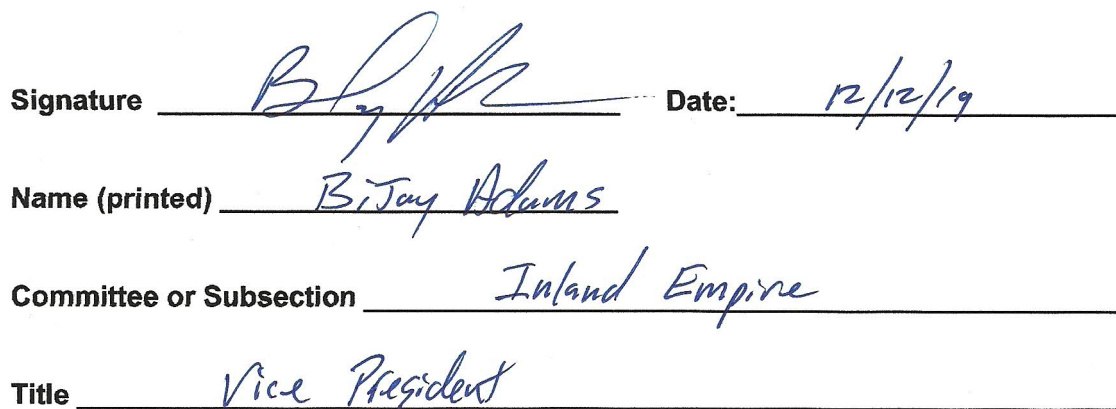 Signature Date: 12/12/19
Name (printed) BiJay Adams
Committee or Subsection Inland Empire
Title Vice President